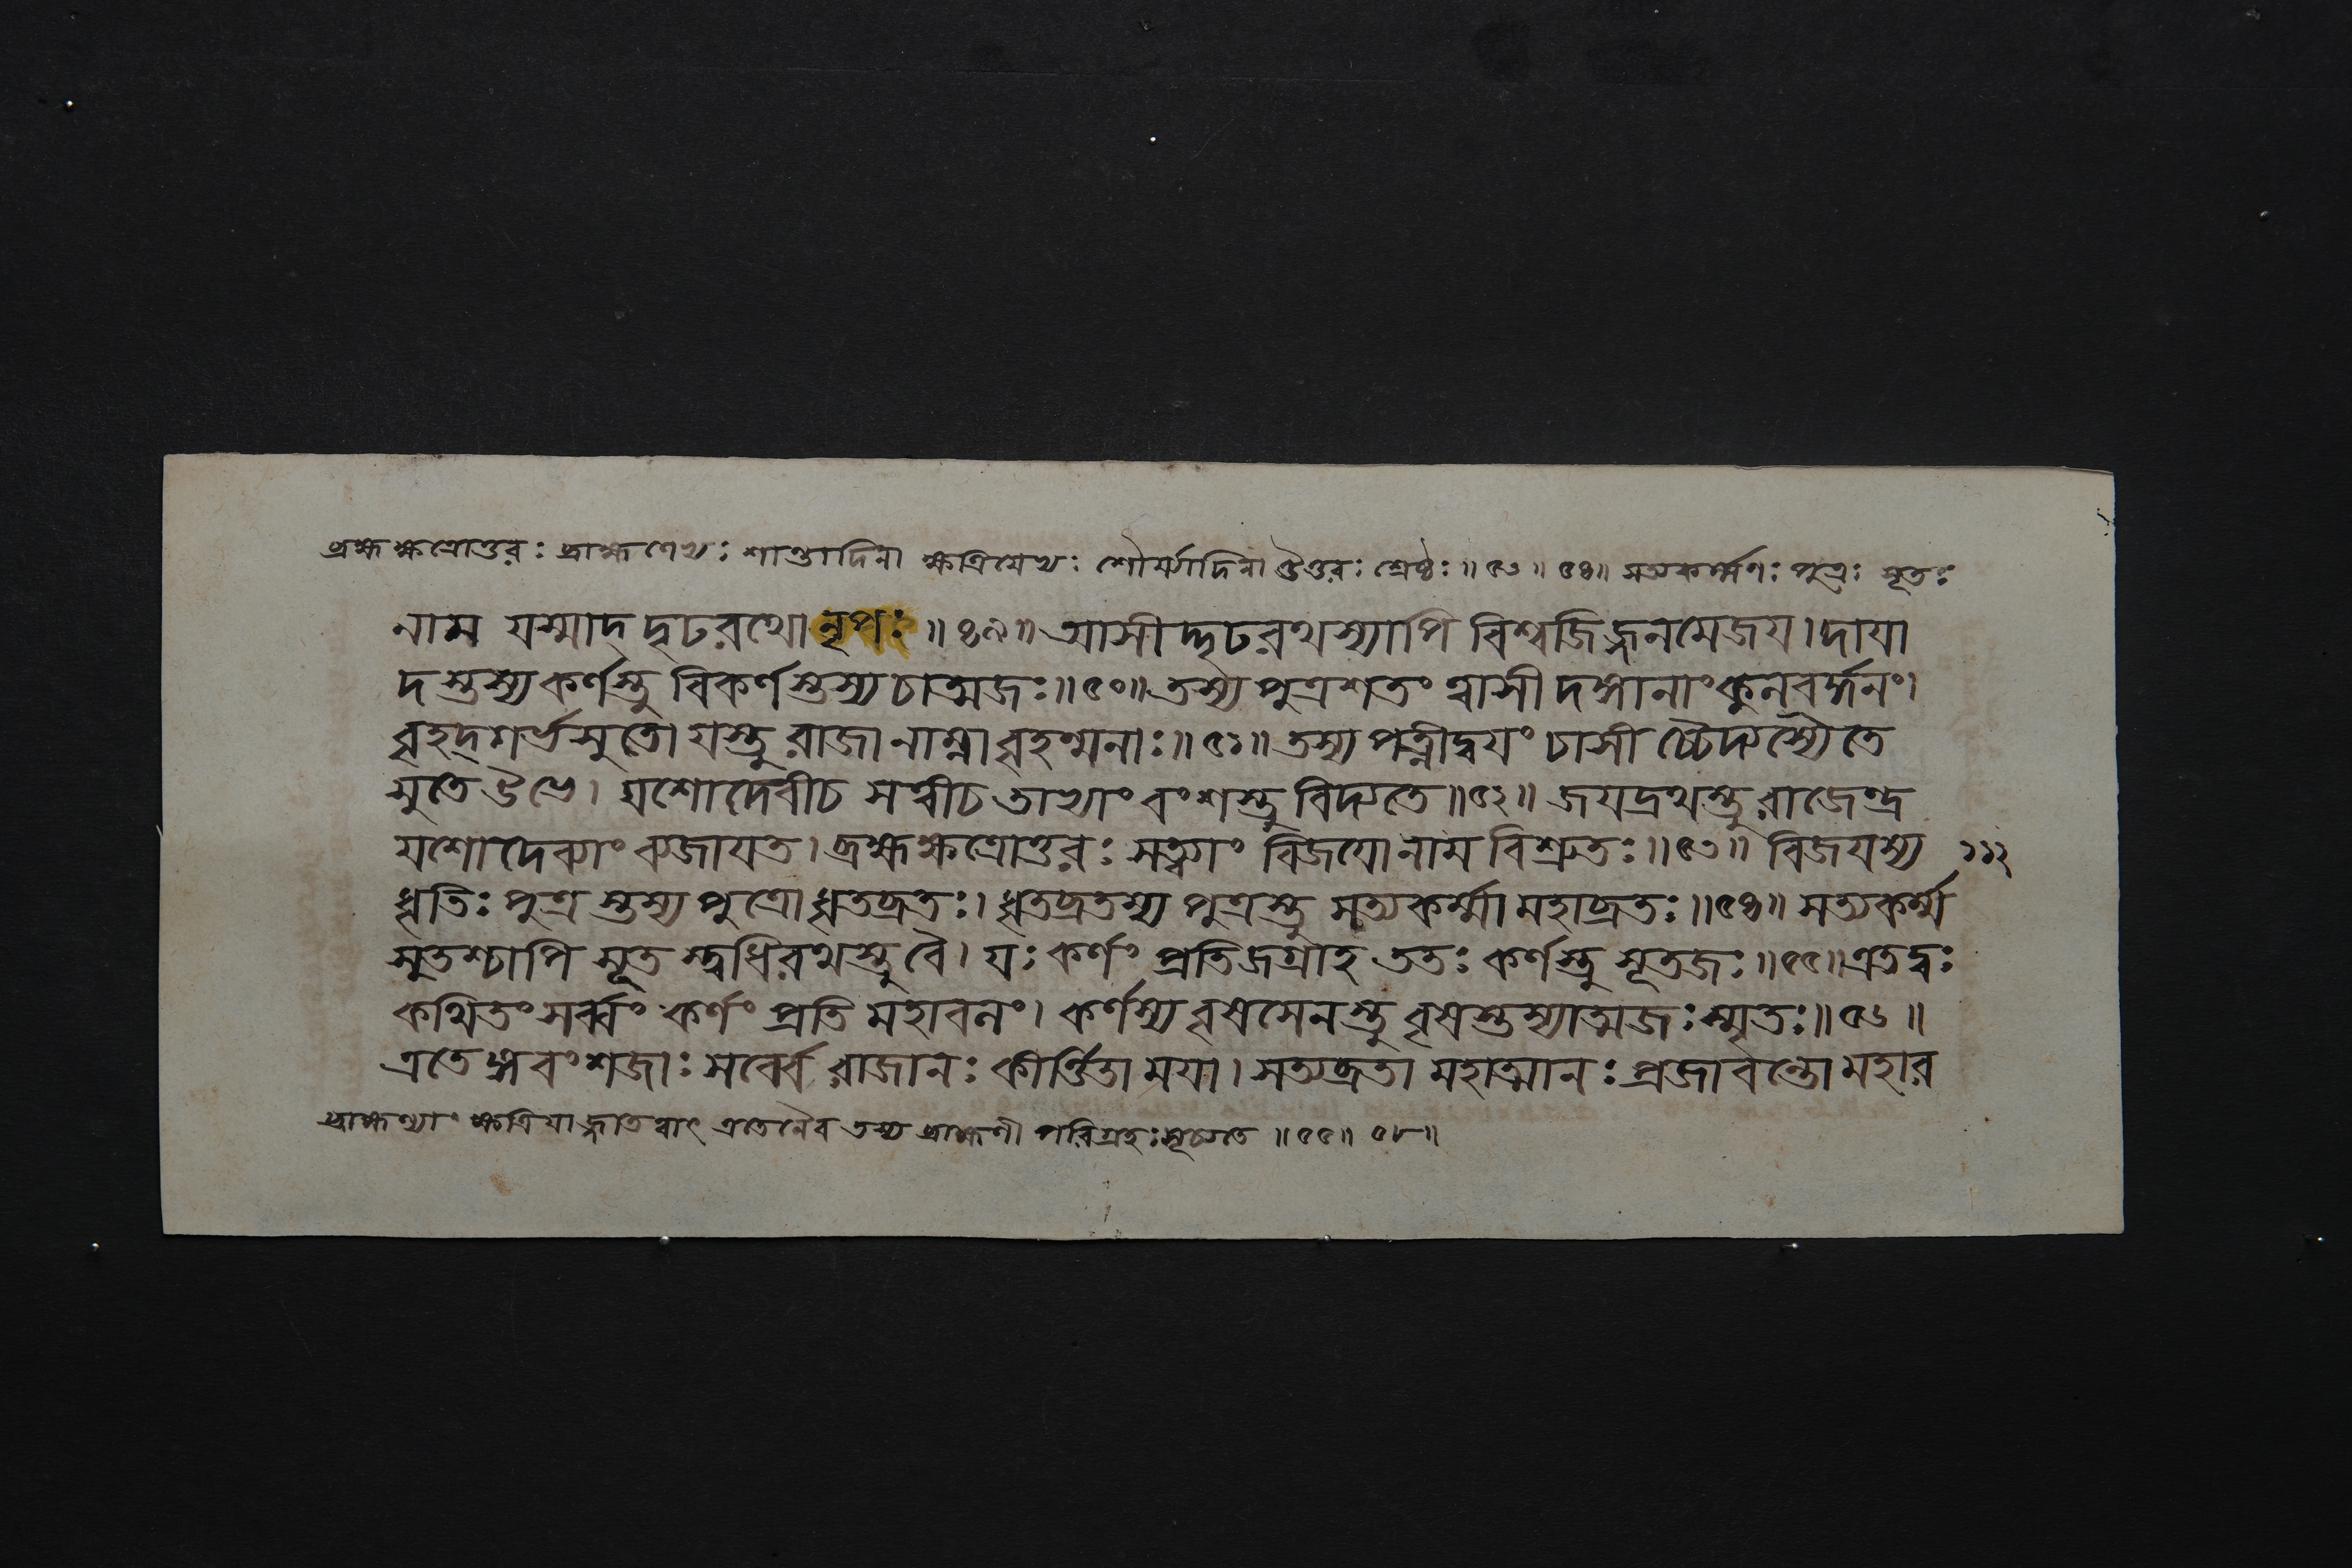 ব্রহ্মক্ষত্রোত্তরঃ ব্রাহ্মণেভ্যঃ শান্ত্যাদিনা ক্ষত্রিযেভ্যঃ শৌর্য্যাদিনা উত্তরঃ শ্রেষ্ঠঃ॥৫৩॥ ৫৪॥ সত্যকর্ম্মণঃ পুত্রঃ সূতঃ
নাম যস্মাদ্ দৃঢরথো নৃপঃ॥৪৯॥ আসীদ্দৃঢরথস্যাপি বিশ্বজিজ্জনমেজয। দাযা
দস্তস্য কর্ণস্তু বিকর্ণস্তস্য চাত্মজঃ॥৫০॥ তস্য পুত্রশতং ত্বাসীদঙ্গানাং কুলবর্দ্ধনং।
বৃহদ্দর্ভসুতো যস্তু রাজা নাম্না বৃহন্মনাঃ॥৫১॥ তস্য পত্নীদ্বযং চাসীচ্চৈদ্যস্যৈতে
সুতে শুভে। যশোদেবী চ সত্বী চ তাভ্যাং বংশস্তু বিদ্যতে॥৫২॥ জযদ্রথস্তু রাজেন্দ্র
যশোদেব্যাং ব্যজাযত। ব্রহ্মক্ষত্রোত্তরঃ সত্ব্যাং বিজযো নাম বিশ্রুতঃ॥৫৩॥ বিজযস্য ১১২
ধৃতিঃ পুত্রস্তস্য পুত্রো ধৃতব্রতঃ। ধৃতব্রতস্য পুত্রস্তু সত্যকর্ম্মা মহাব্রতঃ॥৫৪॥ সত্যকর্ম্ম
সুতশ্চাপি সূতস্ত্বধিরথস্তু বৈ। যঃ কর্ণং প্রতিজগ্রাহ ততঃ কর্ণস্তু সূতজঃ॥৫৫॥ এতদ্বঃ
কথিতং সর্ব্বং কর্ণং প্রতি মহাবলং। কর্ণস্য বৃষসেনস্তু বৃষস্তস্যাত্মজঃ স্মৃতঃ॥৫৬॥
এতেঙ্গবংশজাঃ সর্ব্বে রাজানঃ কীর্ত্তিতা মযা। সত্যব্রতা মহাত্মানঃ প্রজাবন্তো মহার
ব্রাহ্মণ্যাং ক্ষত্রিযাজ্জাতত্বাৎ এতেনৈব তস্য ব্রাহ্মণী পরিগ্রহঃ সূচ্যতে॥৫৫॥ ৫৮॥